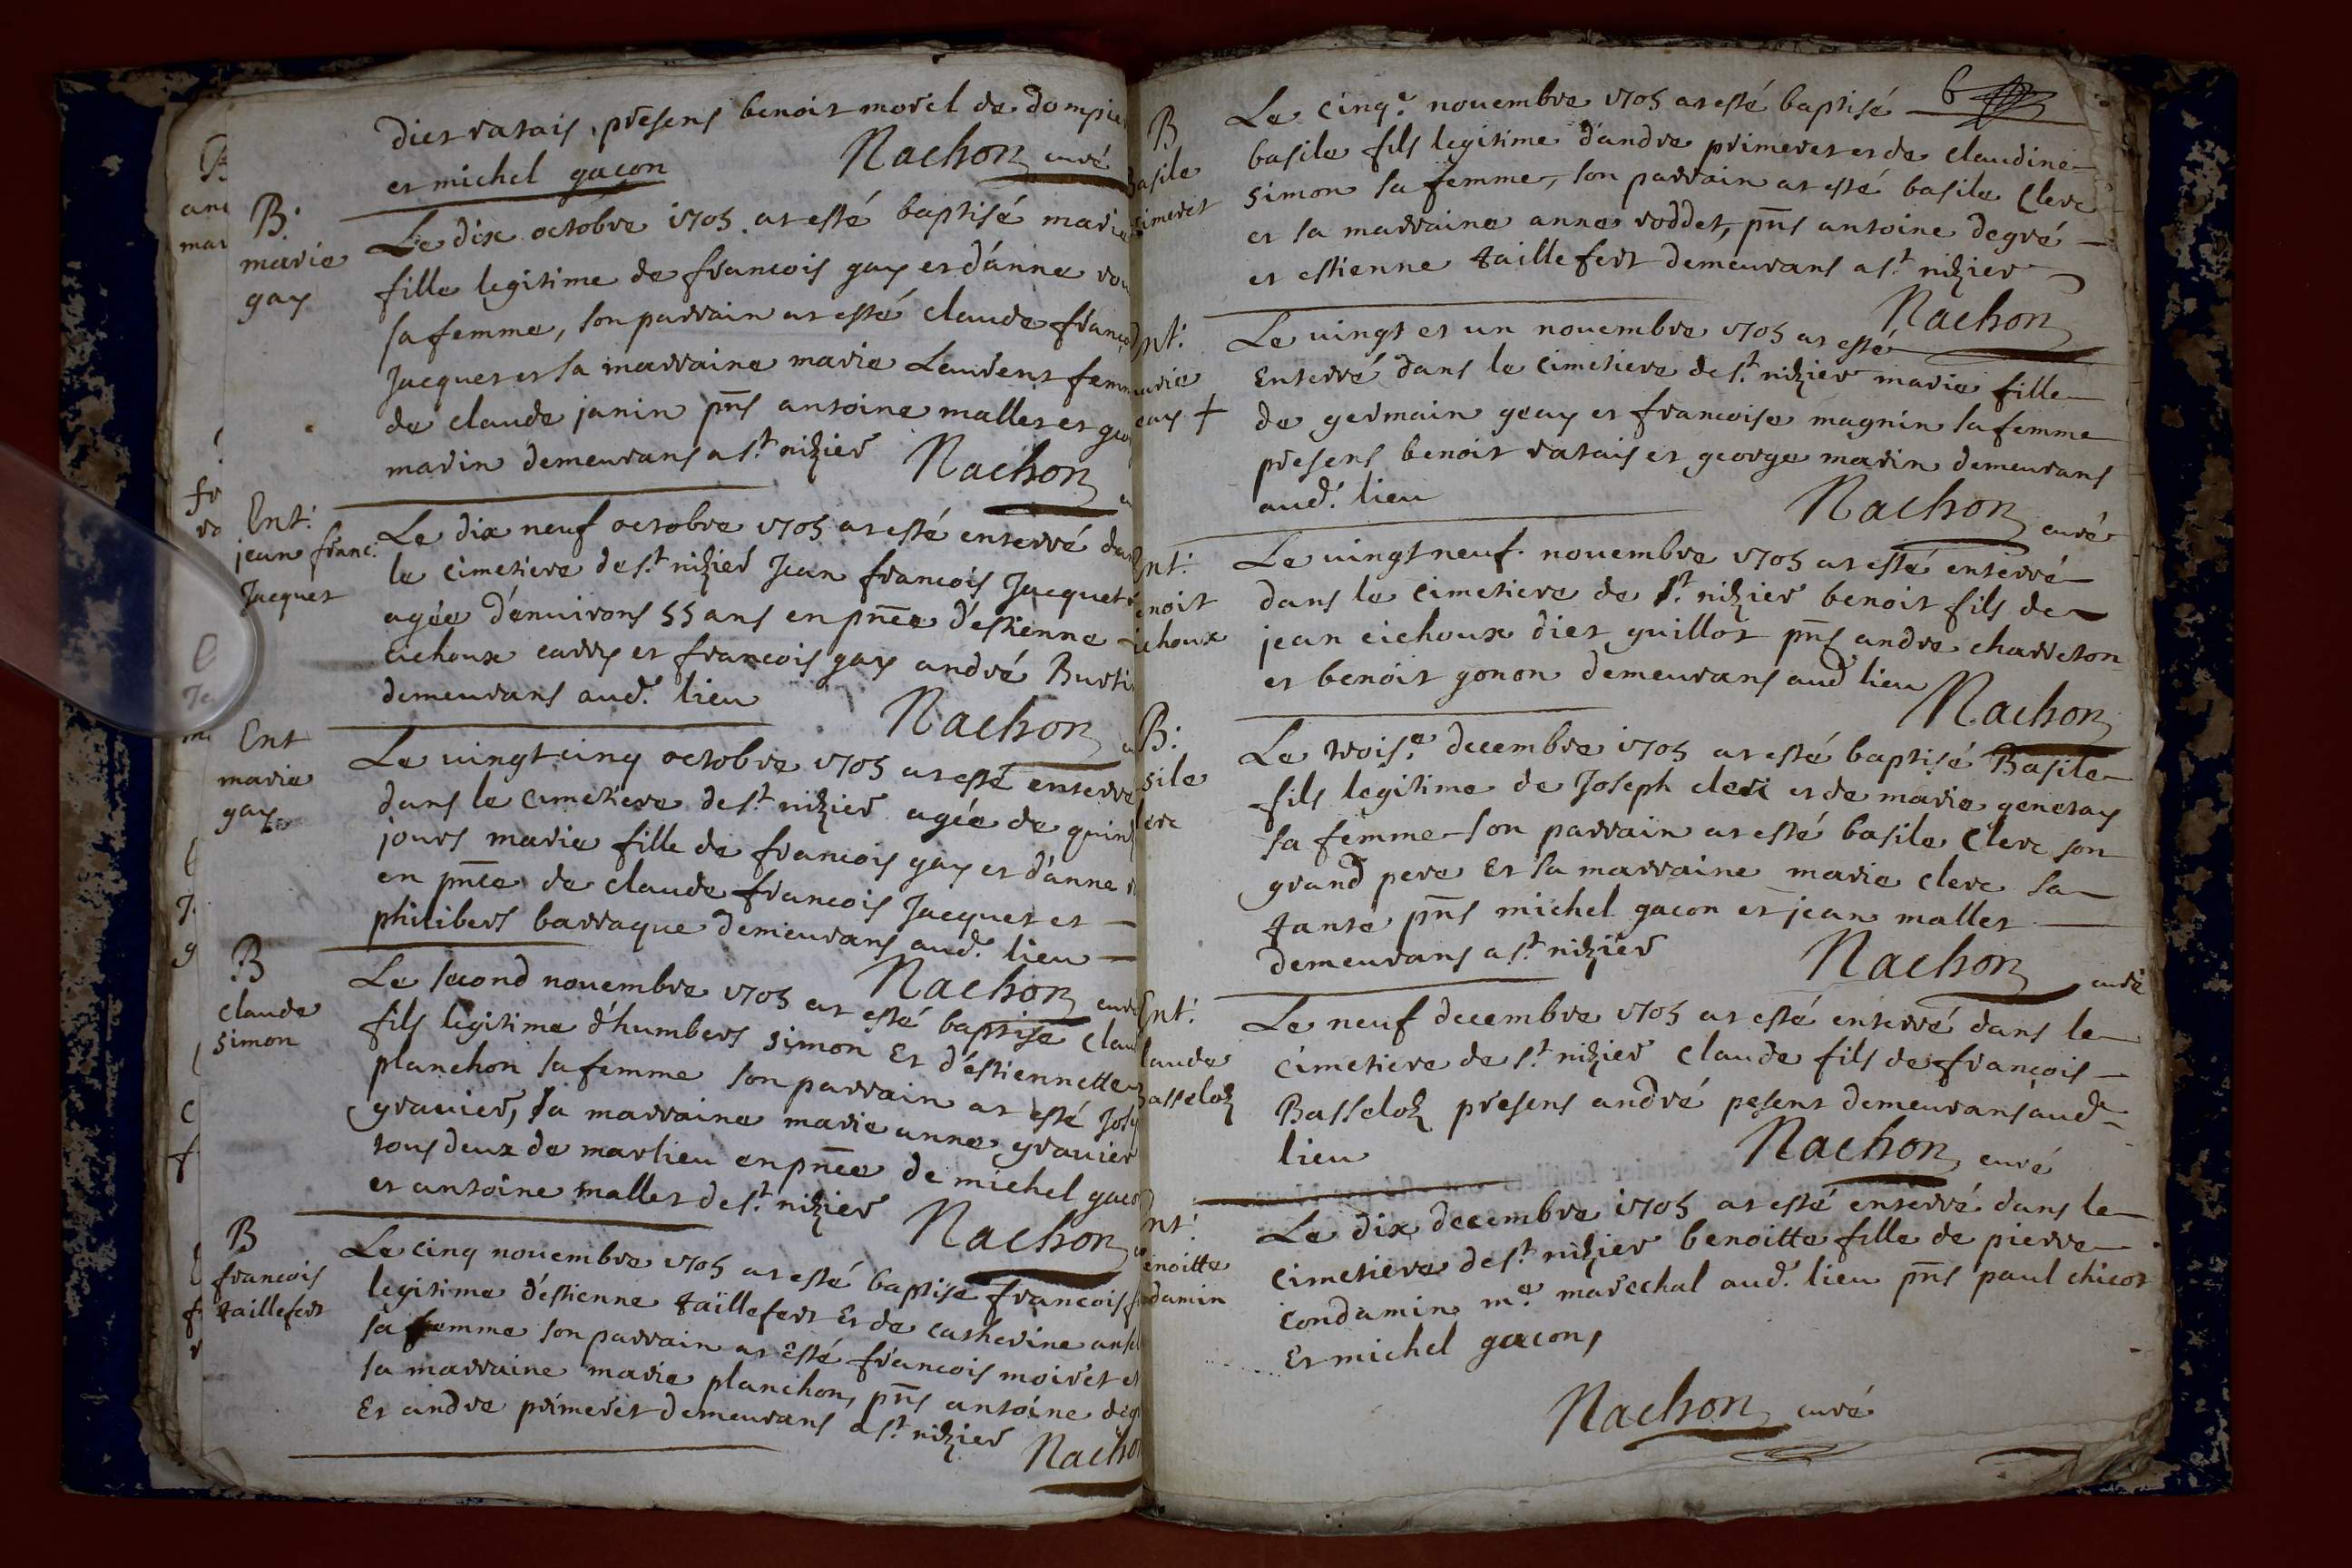 diet ratais, presens benoit morel de dompie
et michel gacon
Nachon curé
B:
marie
gay
Le dix octobre 1705 at esté baptisé marie
fille legitime de francois gay et d'anne
sa femme, son parrain at esté claude franço
Jacquet et sa marraine marie Laurent femm
de claude janin pñs antoine mallet et geo
marin demeurans a st nizier
Nachon
Ent:
jean franc:
Jacquet
Le dix neuf octobre 1705 at esté enterré dan
le cimetiere de st nizier Jean francois Jacquet
agée d'environs 55 ans en pñce d'estienne
cichoux carry et francois gay andré Burti
demeurans aud. lieu
Nachon
Ent
marie
gay
Le vingt cinq octobre 1705 at esté enterré
dans le cimetiere de st nizier agée de quin
jours marie fille de francois gay et d'anne
en pñce de claude francois Jacquet et
philibert barraque demeurans aud. lieu
Nachon curé
B
claude
simon
Le second novembre 1705 at esté baptisé clau
fils legitime d'humbert simon Et d'estiennette
planchon sa femme son parrain at esté Jos
gravier, sa marraine marie anne gravier
tous deux de marlieu en pñce de michel gaco
et antoine mallet de st nizier
Nachon
B
francois
taillefert
Le cinq novembre 1705 at esté baptisé francois
legitime d'estienne taillefert Et de catherine
sa femme son parrain at Esté francois moiret et
sa marraine marie planchon, pñs antoine deg
Et andre primeret demeurans a st nizier
Nachon
B
Basile
primeret
Le cinqe novembre 1705 at esté baptisé
6
basile fils legitime d'andre primeret et de claudine
simon sa femme, son parrain at esté basile Clerc
et sa marraine anne roddet, pñs antoine degré
et estienne taillefert demeurans a st nizier
Nachon
Ent:
marie
geay +
Le vingt et un novembre 1705 at esté
Enterré dans le cimetiere de st nizier marie fille
de germain geay et francoise magnin sa femme
presens benoit ratais et george marin demeurans
aud. lieu
Nachon curé
Ent:
benoit
cichoux
Le vingt neuf novembre 1705 at esté enterré
dans le cimetiere de st nizier benoit fils de
jean cichoux diet guillot pñs andre charreton
et benoit gonon demeurans aud lieu
Nachon
B:
basile
clerc
Le troise decembre 1705 at esté baptisé Basile
fils legitime de Joseph clerc et de marie genetay
sa femme son parrain at esté basile Clerc son
grand pere Et sa marraine marie clerc sa
tante pñs michel gacon et jean mallet
demeurans a st nizier
Nachon curé
Ent:
claude
Basseloz
Le neuf decembre 1705 at esté enterré dans le
cimetiere de st nizier Claude fils de françois
Basseloz presens andré pesent demeurans aud
lieu
Nachon curé
Ent:
benoitte
condamin
Le dix decembre 1705 at esté enterré dans le
cimetiere de st nizier benoitte fille de pierre
condamin me marechal aud. lieu pñs paul chicot
Et michel gacon,
Nachon curé